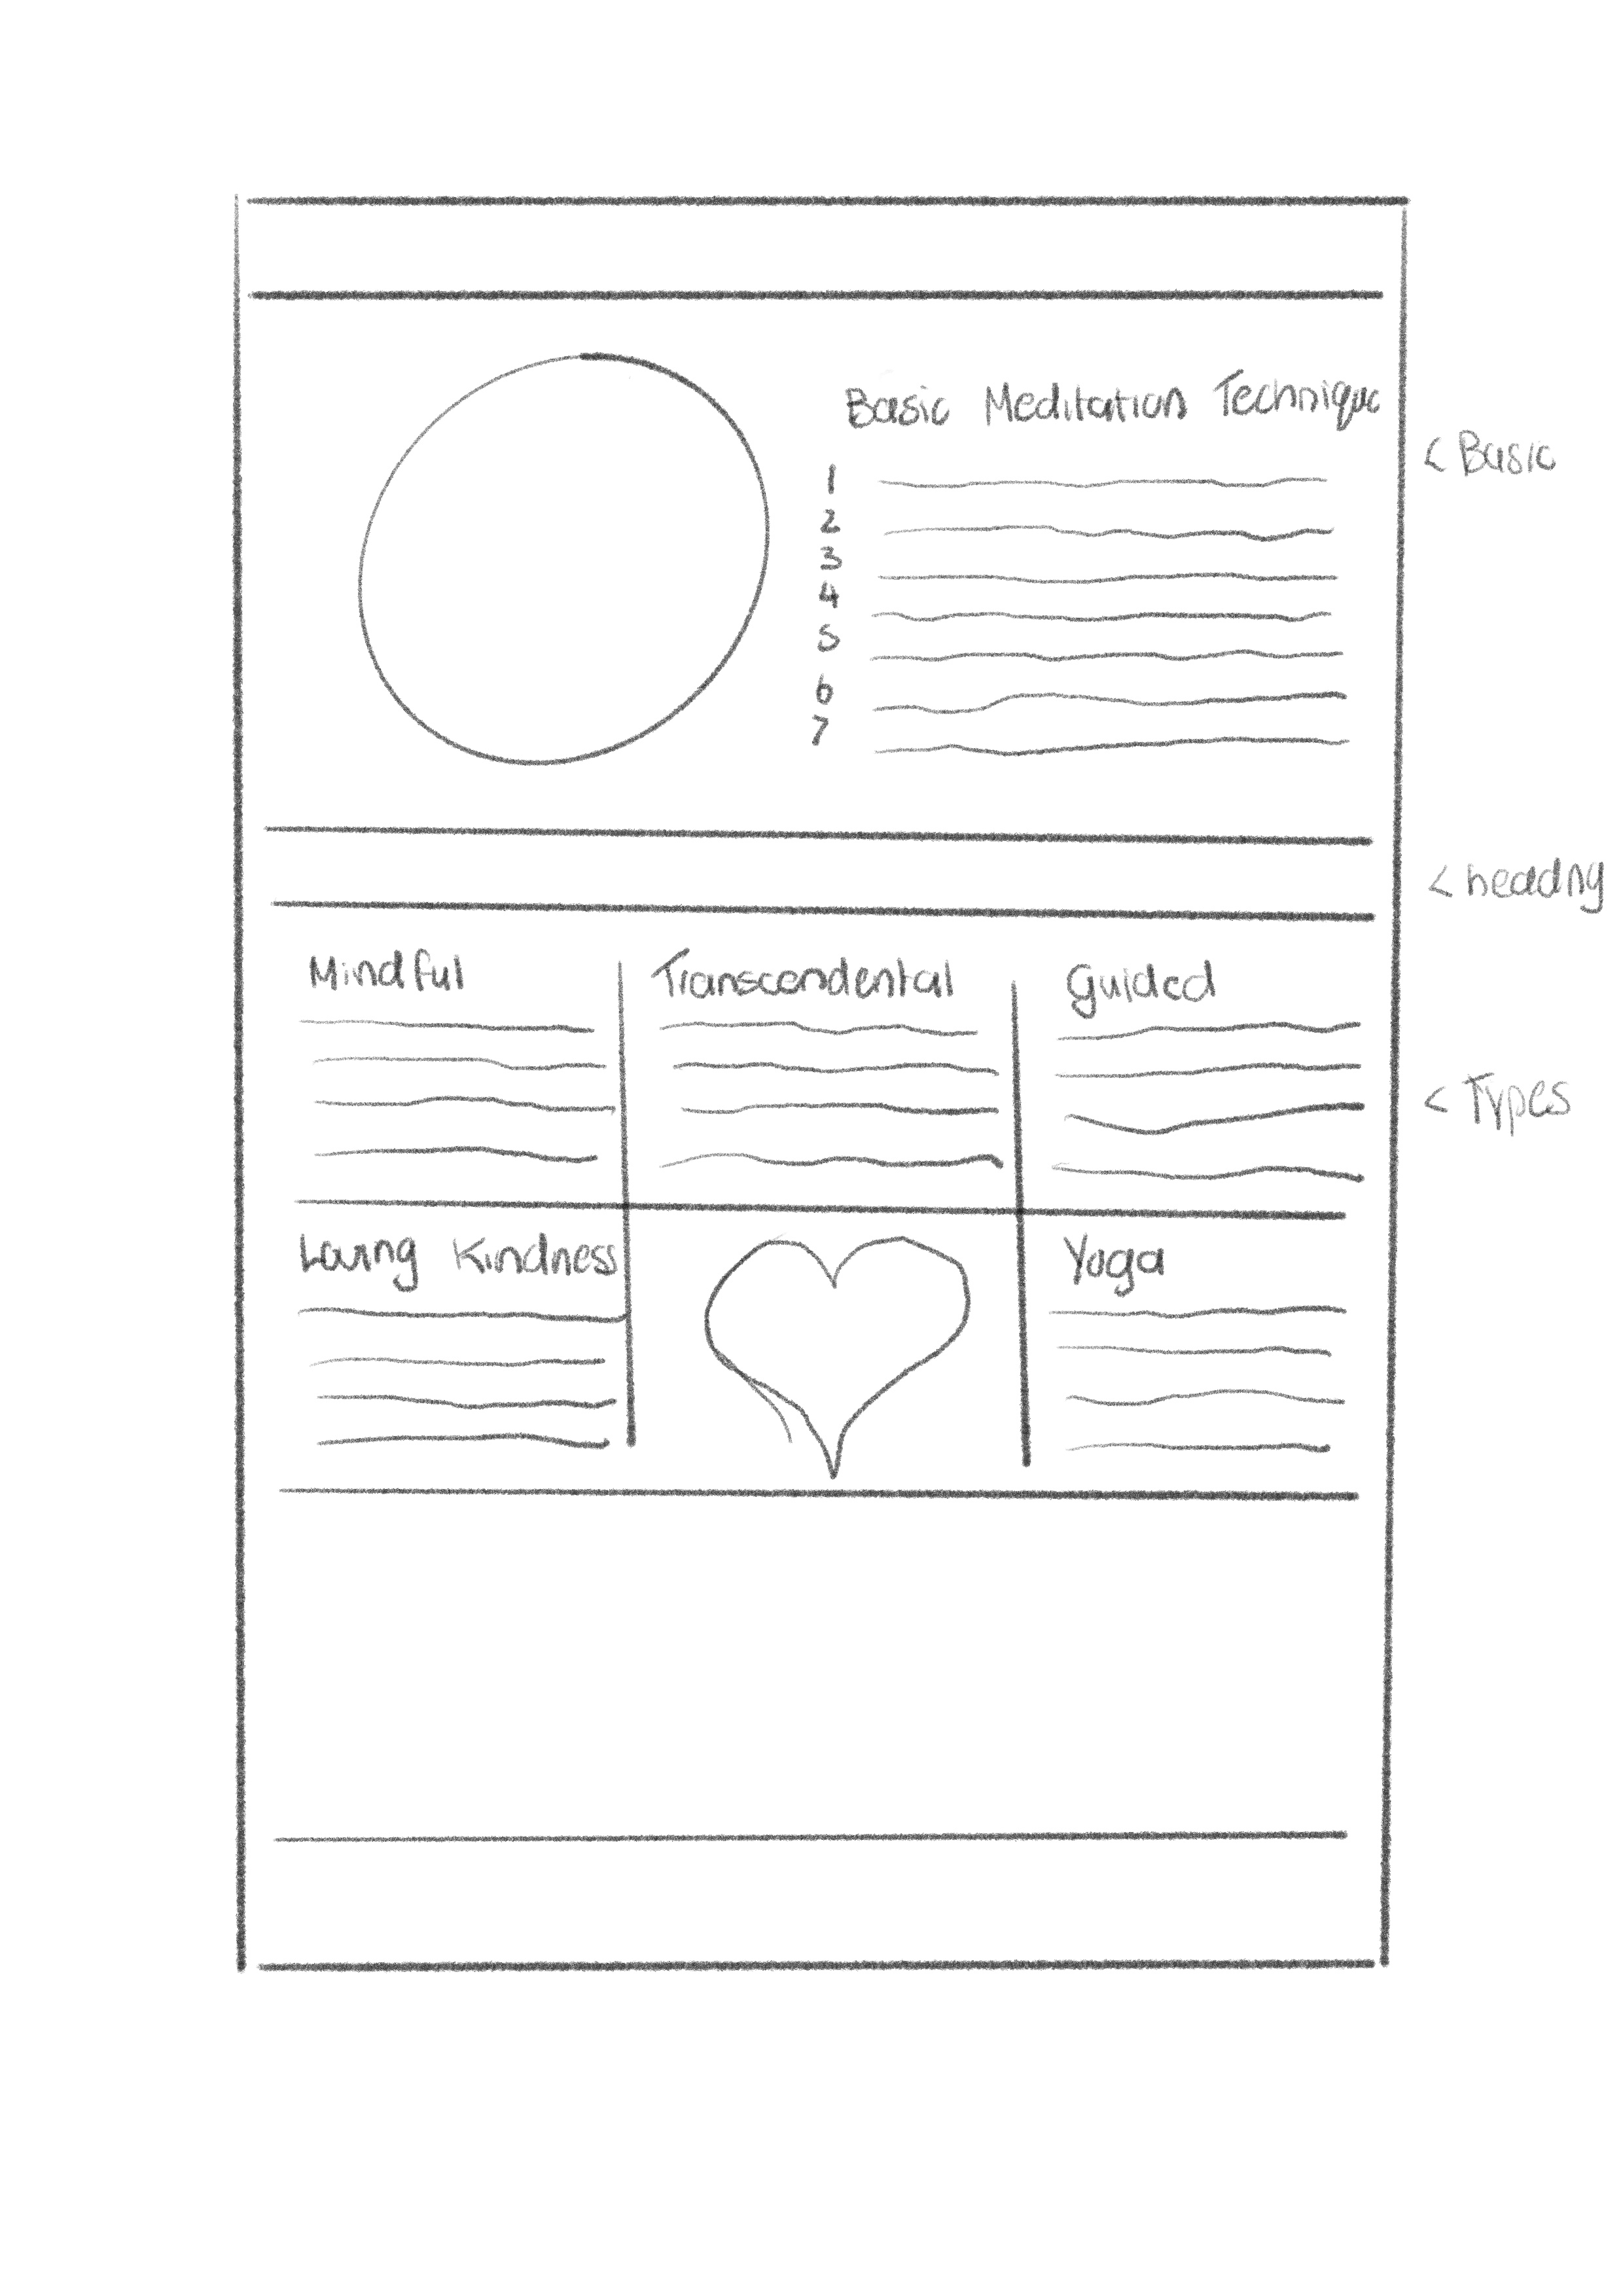 Basic Meditation Technique
< Basic
1
2
3
4
5
6
7
< heading
Mindful
Transcendental
Guided
< Types
Loving Kindness
Yoga